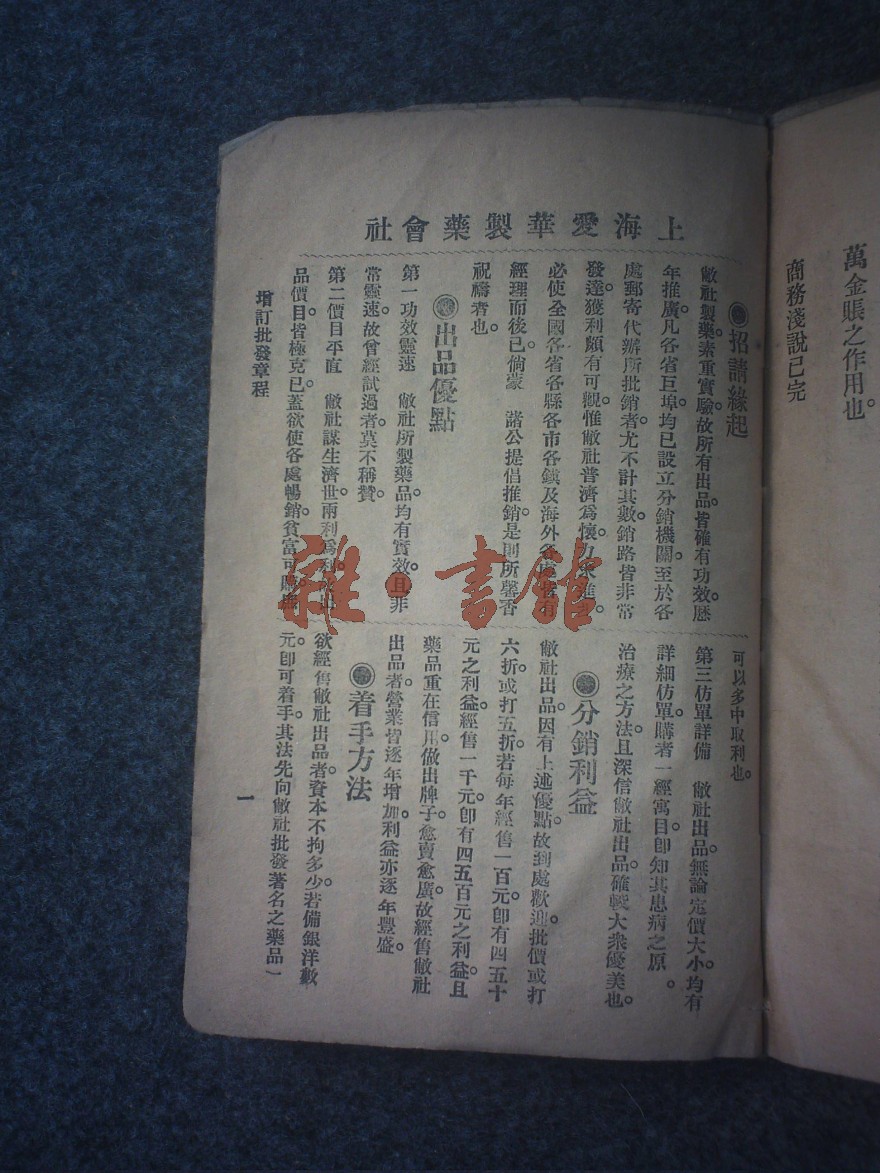 萬金賬之作用也。
商務淺說已完
上海愛華製藥會社
◉招請緣起
敝社製藥素重實驗故所有出品。皆確有功效。歷
年推廣。凡各省巨埠均已設立分銷機關。至於各
處郵寄代辦所批銷者。尤不計其數。銷路皆非常
發達。獲利頗有可觀。惟敝社普濟爲懷。
必使全國各省各縣各市各鎭及海外各處皆有
經理而後已。倘蒙 諸公提倡推銷。是則所馨香
祝禱者也。
◉出品優點
第一功效靈速 敝社所製藥品。均有實效。且非
常靈速。故曾經試過者。莫不稱贊。
第二價目平直 敝社謀生濟世。兩利爲利。故出
品價目。皆極克已。蓋欲使各處暢銷。貧富可購。
可以多中取利也。
第三仿單詳備 敝社出品。無論定價大小。均有
詳細仿單。購者一經寓目。卽知其患病之原。
治療之方法。且深信敝社出品。確較大衆優美也。
◉分銷利益
敝社出品。因有上述優點。故到處歡迎。批價或打
六折。或打五折。若每年經售一百元。卽有四五十
元之利益。經售一千元。卽有四五百元之利益。且
藥品重在信用。做出牌子。愈賣愈廣。故經售敝社
出品者。營業皆逐年增加。利益亦逐年豐盛。
◉着手方法
欲經售敝社出品者。資本不拘多少。若備銀洋數
元。卽可着手。其法先向敝社批發著名之藥品一
增訂批發章程
一
雜·書館